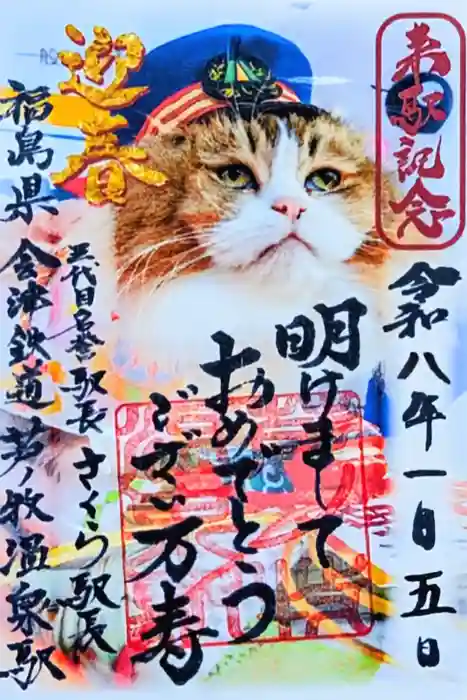 来駅記念
令和八年一月五日
迎春
明けまして
おめでとう
ござい万寿
五代目名誉駅長 さくら駅長
福島県 会津鉄道 芦ノ牧温泉駅